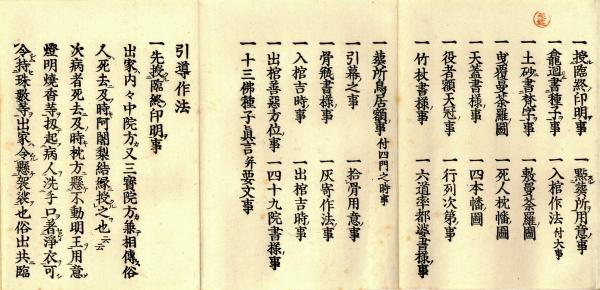 一授臨終印明事　一點葬所用意事
一龕𢌞書種子事　一入棺作法 付大事
一土砂書梵字事　一敷曼荼羅圖
一曳覆曼荼羅圖　一死人枕幡圖
一天蓋書様事　一四本幡圖
一役者額天冠事　一行列次第事
一竹杖書様事　一六道率都婆書様事
一葬所鳥居額事 付四門之時事
一引幕之事　一拾骨用意事
一骨瓶書様事　一灰寄作法事
一入棺吉時事　一出棺吉時事
一出棺善惡方位事　一四十九院書様事
一十三佛種子真言并要文事
引導作法
一先授臨終印明事
出家内々中院方又三寳院方兼相傳俗
人死去及時阿闍梨結縁授之也云云
次病者死去及時枕方懸不動明王用意
燈明燒香等扨起病人洗手口著淨衣可
令持珠數等出家令懸袈裟也俗出共臨